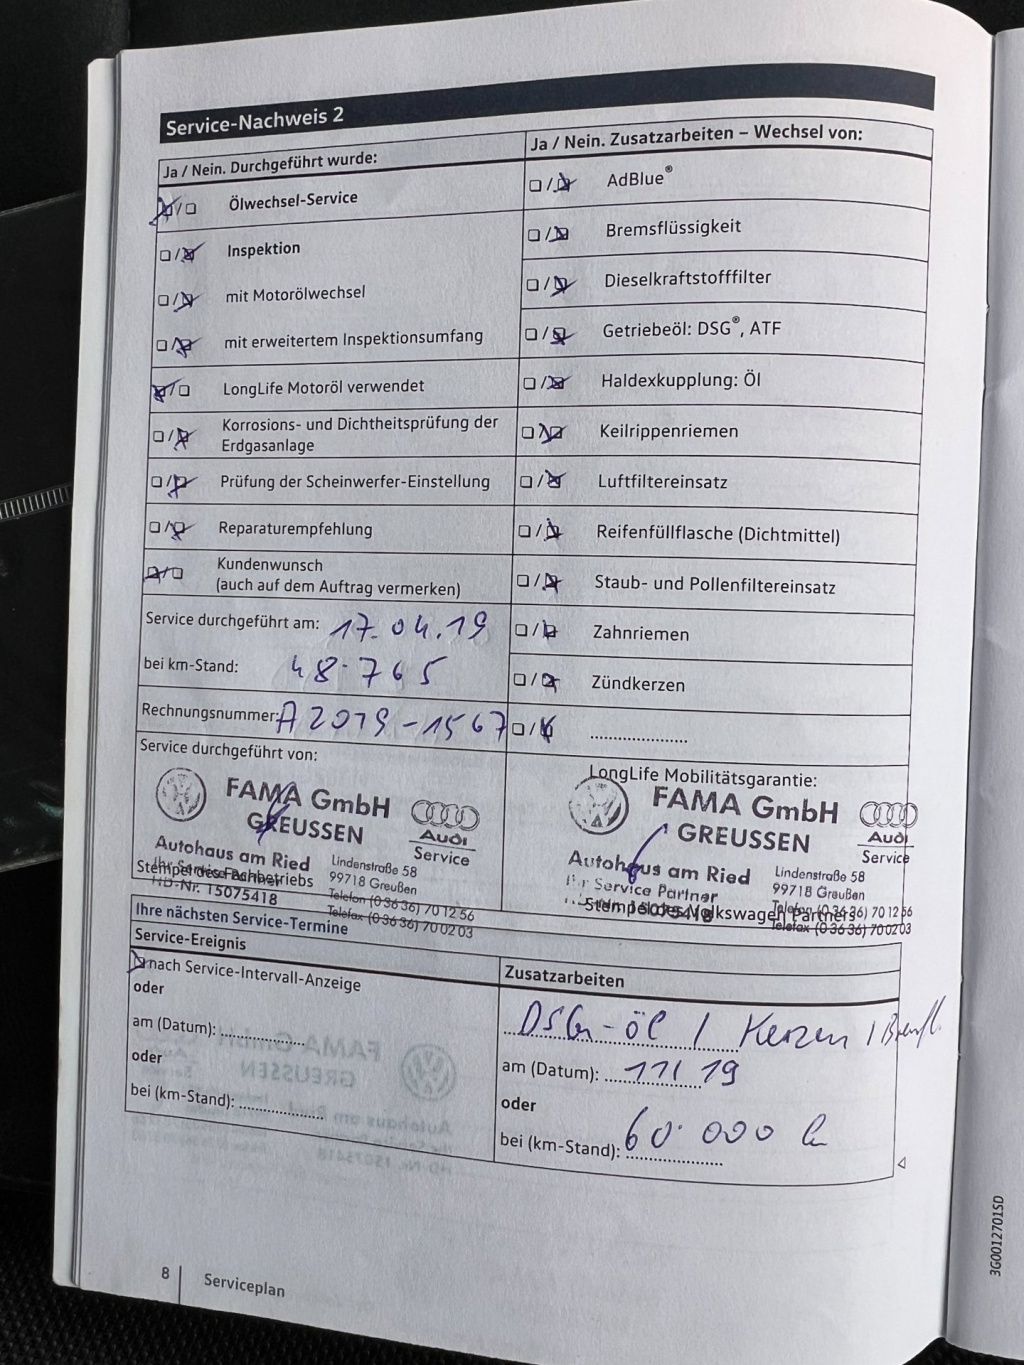 Service-Nachweis 2
Ja / Nein. Durchgeführt wurde:
Ölwechsel-Service
Inspektion
mit Motorölwechsel
mit erweitertem Inspektionsumfang
LongLife Motoröl verwendet
Korrosions- und Dichtheitsprüfung der
Erdgasanlage
Prüfung der Scheinwerfer-Einstellung
Reparaturempfehlung
Kundenwunsch
(auch auf dem Auftrag vermerken)
Service durchgeführt am: 17.04.19
bei km-Stand: 48.765
Rechnungsnummer: A2019-1567
Service durchgeführt von:
FAMA GmbH
GREUSSEN
Audi
Service
Autohaus am Ried
Ihr Service Partner
HD-Nr. 15075418
Lindenstraße 58
99718 Greußen
Telefon (0 36 36) 70 12 56
Telefax (0 36 36) 70 02 03
Stempel des Fachbetriebs
Ja / Nein. Zusatzarbeiten – Wechsel von:
AdBlue®
Bremsflüssigkeit
Dieselkraftstofffilter
Getriebeöl: DSG®, ATF
Haldexkupplung: Öl
Keilrippenriemen
Luftfiltereinsatz
Reifenfüllflasche (Dichtmittel)
Staub- und Pollenfiltereinsatz
Zahnriemen
Zündkerzen
LongLife Mobilitätsgarantie:
FAMA GmbH
GREUSSEN
Audi
Service
Autohaus am Ried
Ihr Service Partner
15075418
Lindenstraße 58
99718 Greußen
Telefon (0 36 36) 70 12 56
Telefax (0 36 36) 70 02 03
Stempel des Volkswagen Partners
Ihre nächsten Service-Termine
Service-Ereignis
nach Service-Intervall-Anzeige
oder
am (Datum):
oder
bei (km-Stand):
Zusatzarbeiten
DSG-Öl / Kerzen / Bremfl.
am (Datum): 11/19
oder
bei (km-Stand): 60.000
8
Serviceplan
3G0012701SD